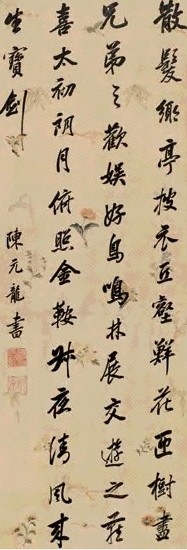 散髮鄉亭披衣丘壑鮮花匝樹盡
兄弟之歡娛好鳥鳴林展交遊之莊
喜太初朗月俯照金鞍叔夜清風來
生寶劍
陳元龍書